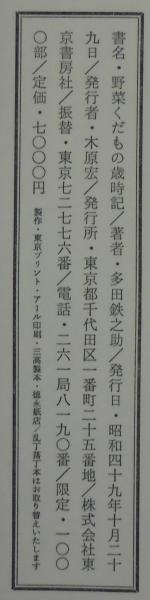 書名・野菜くだもの歳時記／著者・多田鉄之助／発行日・昭和四十九年十月二十
九日／発行者・木原宏／発行所・東京都千代田区一番町二十五番地／株式会社東
京書房社／振替・東京七二七七六番／電話・二六一局八一九〇番／限定・一〇〇
〇部／定価・七〇〇〇円　製作・東京プリント・アール印刷・三高製本・徳永紙店／乱丁落丁本はお取り替えいたします